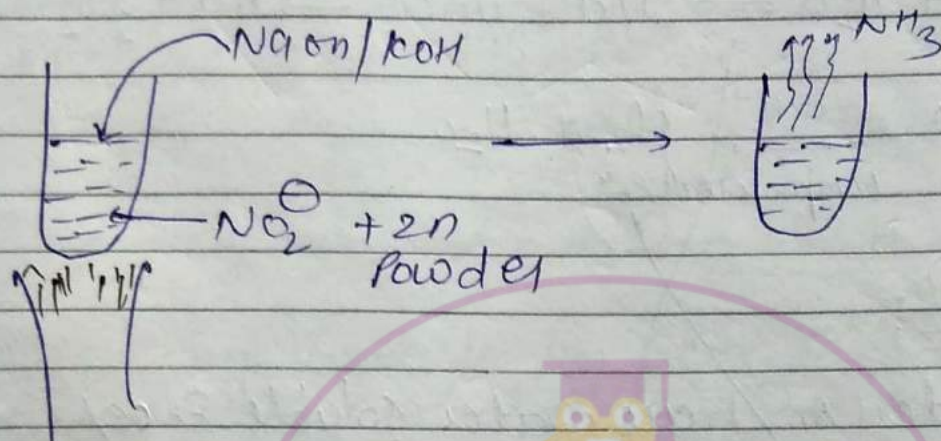 NaOH/KOH
NH₃
NO₂⊖ + Zn
Powder